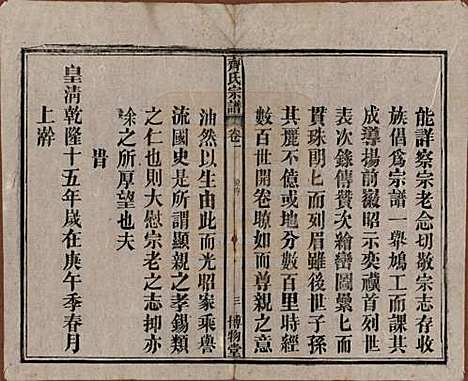 能詳察宗老念切敬宗志存收
族倡為宗譜一舉鳩工而課其
成導揚前徽昭示奕禩首列世
表次錄傳贊次繪巒圖纍七而
貫珠朗七而列眉雖後世子孫
其麗不億或地分數百里時經
數百世開卷瞭如而尊親之意
齊氏宗譜
卷一
三
博物堂
油然以生由此而光昭家乘譽
流國史是所謂顯親之孝錫類
之仁也則大慰宗老之志抑亦
余之所厚望也夫
旹
皇清乾隆十五年歲在庚午季春月
上澣